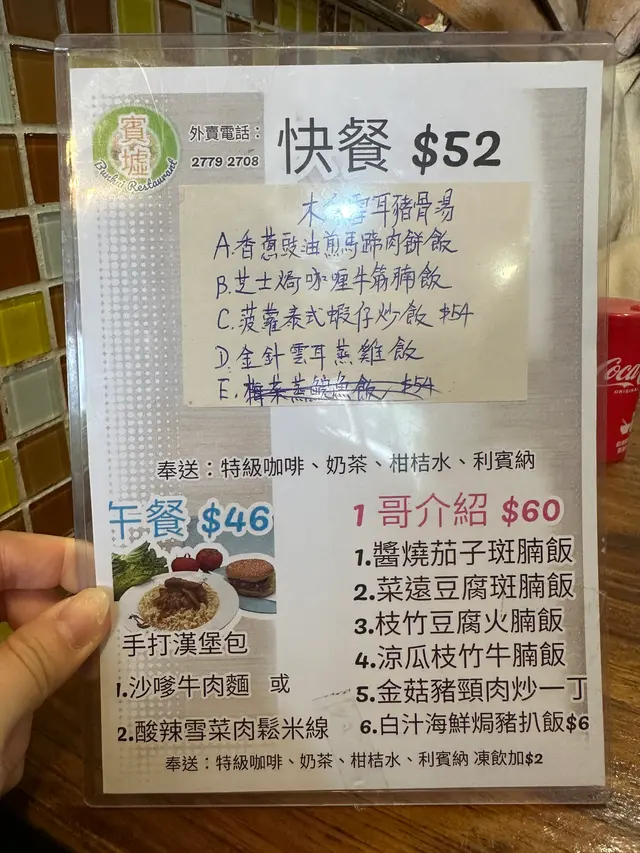 賓墟
Bunhui Restaurant
外賣電話：
2779 2708
快餐 $52
木 雪耳豬骨湯
A.香蔥豉油煎馬蹄肉餅飯
B.芝士焗咖喱牛筋腩飯
C.菠蘿泰式蝦仔炒飯 $54
D.金針雲耳蒸雞飯
E.梅菜蒸鯇魚飯 $54
奉送：特級咖啡、奶茶、柑桔水、利賓納
午餐 $46
手打漢堡包
1.沙嗲牛肉麵 或
2.酸辣雪菜肉鬆米線
1 哥介紹 $60
1.醬燒茄子斑腩飯
2.菜遠豆腐斑腩飯
3.枝竹豆腐火腩飯
4.涼瓜枝竹牛腩飯
5.金菇豬頸肉炒一丁
6.白汁海鮮焗豬扒飯$6
奉送：特級咖啡、奶茶、柑桔水、利賓納 凍飲加$2
Coca
ORIGINAL